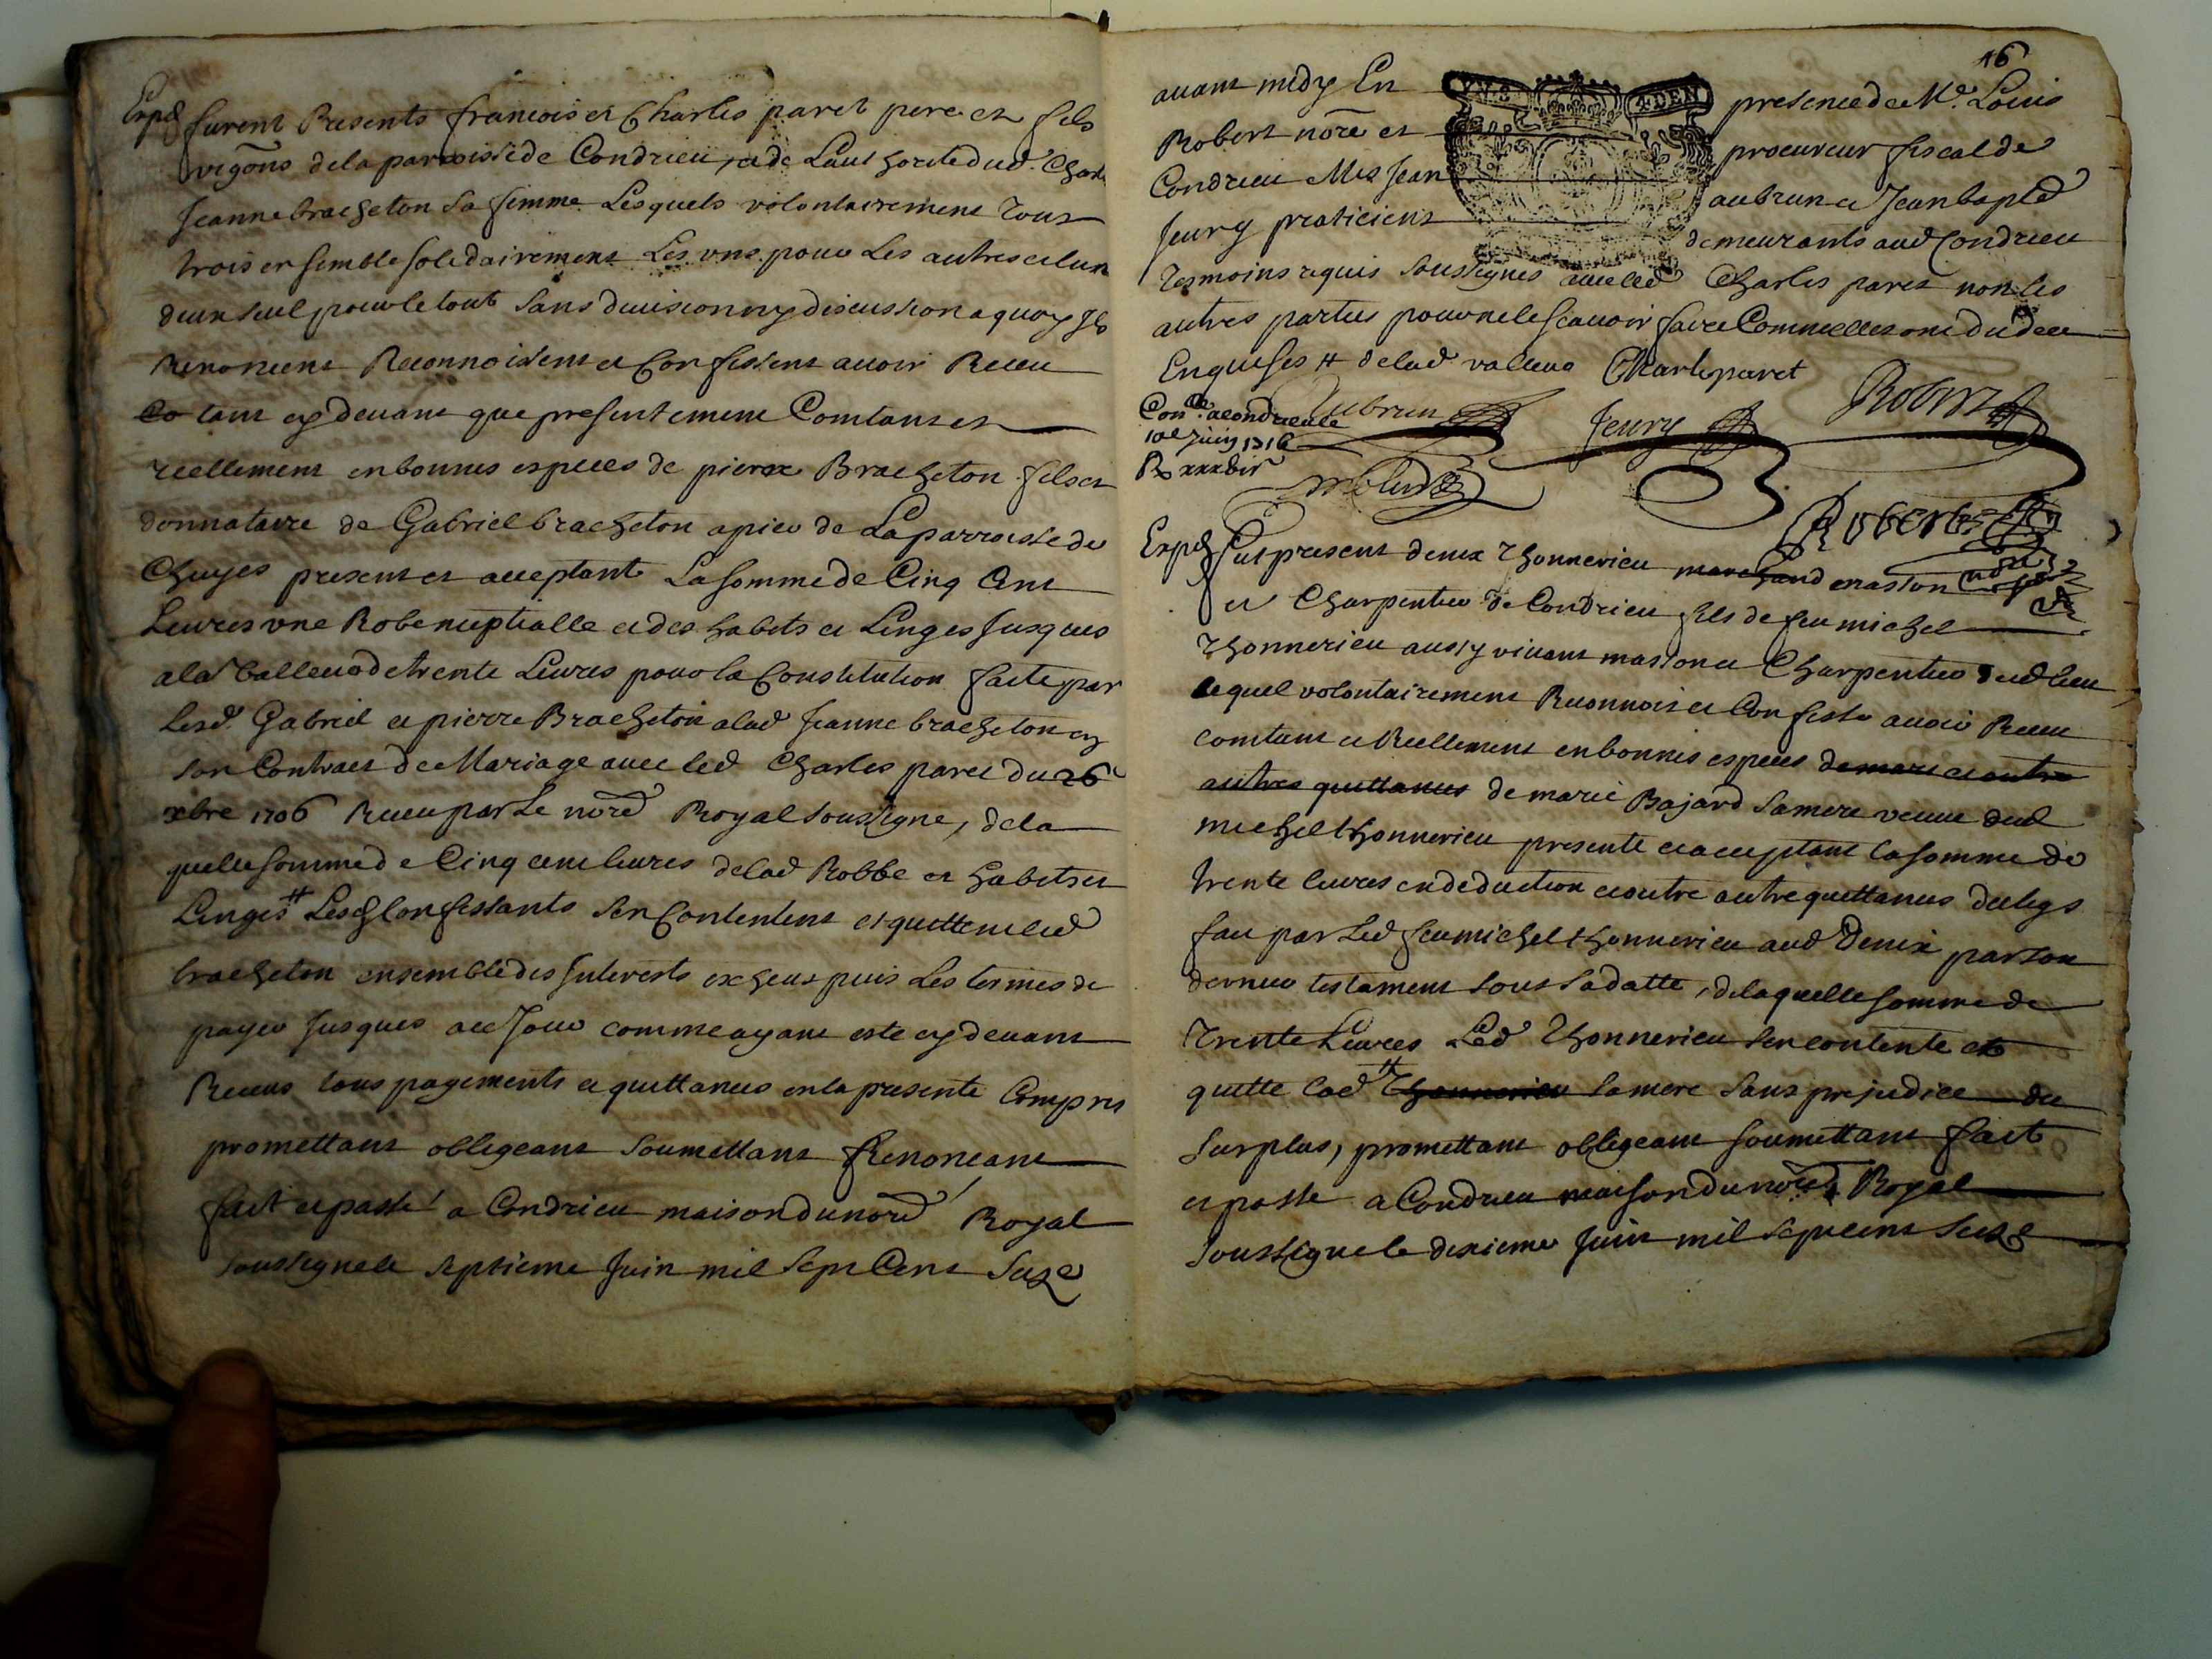 Exped
furent Presents francois et Charles paret pere et fils
vigons de la parroisse de Condrieu, et de Lauthorite dud. Charles
Jeanne bracheton sa femme Lesquels volontairement Tous
trois ensemble solidairement Les uns pour Les autres et lun
deux seul pour le tout sans division ny discussion a quoy Ils
Renoncent Reconnoissent et Confessent avoir Receu
tant cy devant que presentement Comtant et
reellement en bonnes especes de pierre Bracheton fils et
donnataire de Gabriel bracheton apieu de La parroisse de
Chuyes present et acceptant La somme de Cinq Cent
Livres une Robe nuptialle et des habits et Linges Jusques
a la Valleur de trente Livres pour la Constitution faite par
Lesd. Gabriel et pierre Bracheton a lad Jeanne bracheton en
son Contract de Mariage avec led Charles paret du 26e
xbre 1706 Receu par Le nore Royal soussigne, de la
quelle somme de Cinq cent livres de lad Robbe et habits et
Linges # Lesd Confessants sen Contentent et quittent led
bracheton ensemble des Interests escheus puis Les termes de
payer Jusques a ce Jour comme ayant este cy devant
Receus tous payements et quittances en la presente Compris
promettant obligeant soumettant Renoncant
fait et passe a Condrieu maison du nore Royal
soussigne le septieme Juin mil Sept Cent Seize
16
avant midy En presence de Me. Louis
Robert nore et procureur fiscal de
Condrieu Mes Jean aubrun et Jean baptd
Jeury praticiens demeurants aud Condrieu
Tesmoins requis soussignes avec led Charles paret non les
autres parties pour ne le scavoir faire Comme elles ont dit de ce
Enquises # de lad valleur Charle paret
Aubrun Jeury Robert
Conlle a condrieu le
10e Juin 1716
Robert
nore
Exped
fut present denix Thonnerieu marchand masson
et Charpentier de Condrieu fils de feu michel
Thonnerieu aussy vivant masson et Charpentier dud lieu
lequel volontairement Reconnois et Confesse avoir Receu
comtant et Reellement en bonnes especes de marie et outre
autres quittances de marie Bajard sa mere veuve dud
michel thonnerieu presente et acceptant la somme de
trente livres en deduction et outre autre quittances du legs
fait par Led feu michel thonnerieu aud Denix par son
dernier testament sous sa datte, de laquelle somme de
Trente Livres Led Thonnerieu sen contente et
quitte lad # Thonnerieu sa mere sans prejudice du
surplus, promettant obligeant soumettant fait
et passe a Condrieu maison du nore Royal
soussigne le dixieme Juin mil sept cent seize